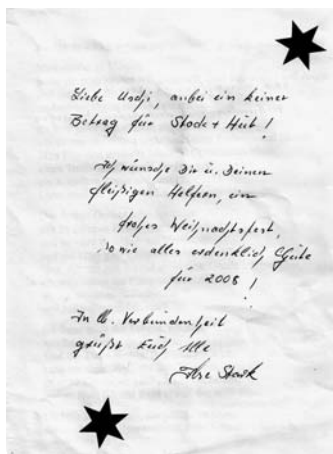 Liebe Uschi, anbei ein keiner
Betrag für Stode + Hüt!
Ich wünsche Dir u. Deinen
fleißigen Helfern, ein
frohes Weihnachtsfest,
sowie alles erdenklich Gute
für 2008!
In lb. Verbundenheit
grüßt Euch Alle
Stark